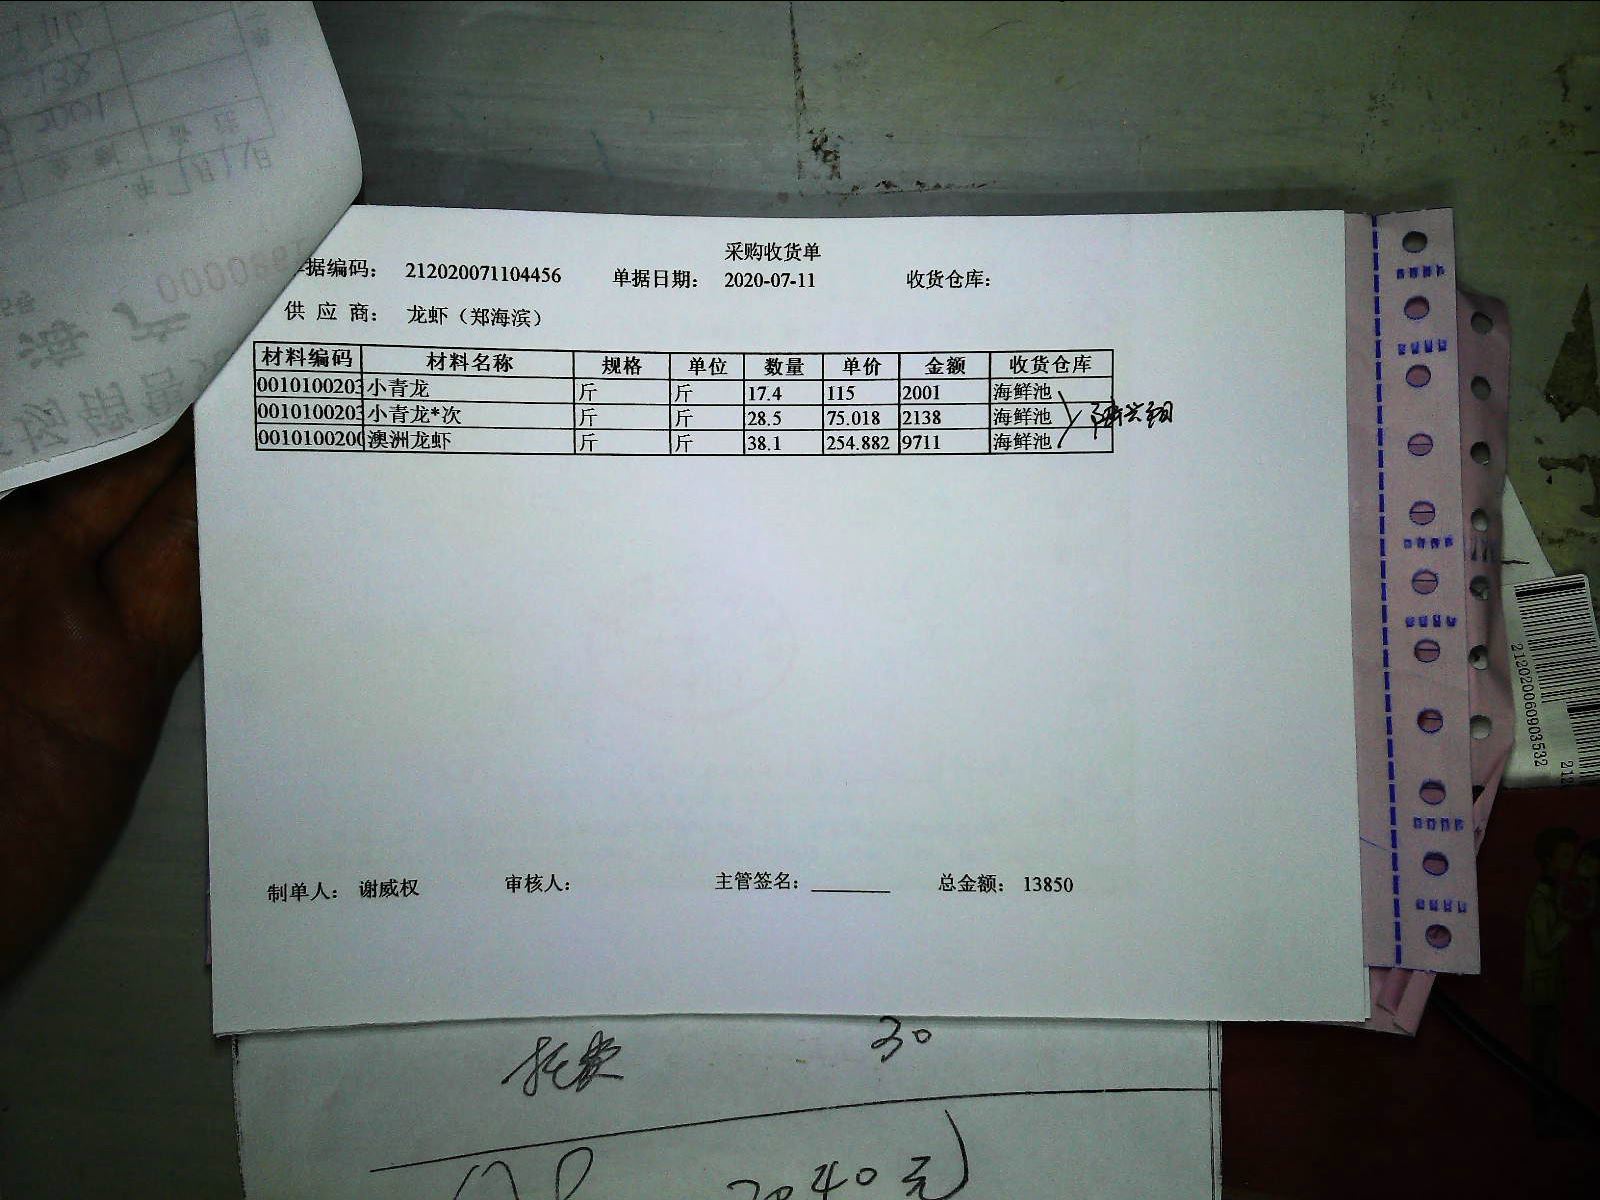 采购收货单
据编码： 212020071104456 单据日期： 2020-07-11 收货仓库：
供 应 商： 龙虾（郑海滨）
材料编码 材料名称 规格 单位 数量 单价 金额 收货仓库
0010100203 小青龙 斤 斤 17.4 115 2001 海鲜池
0010100203 小青龙*次 斤 斤 28.5 75.018 2138 海鲜池
001010020 澳洲龙虾 斤 斤 38.1 254.882 9711 海鲜池
制单人： 谢威权 审核人： 主管签名： 总金额： 13850
30
40元
212020060903532
212